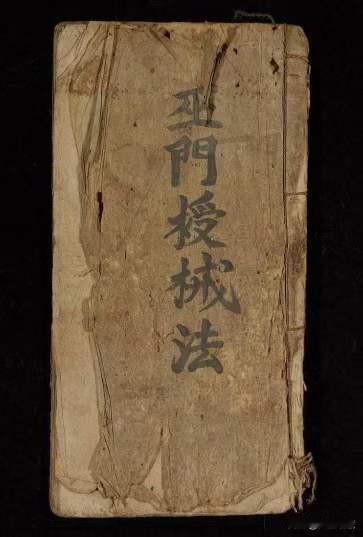 巫門授械法